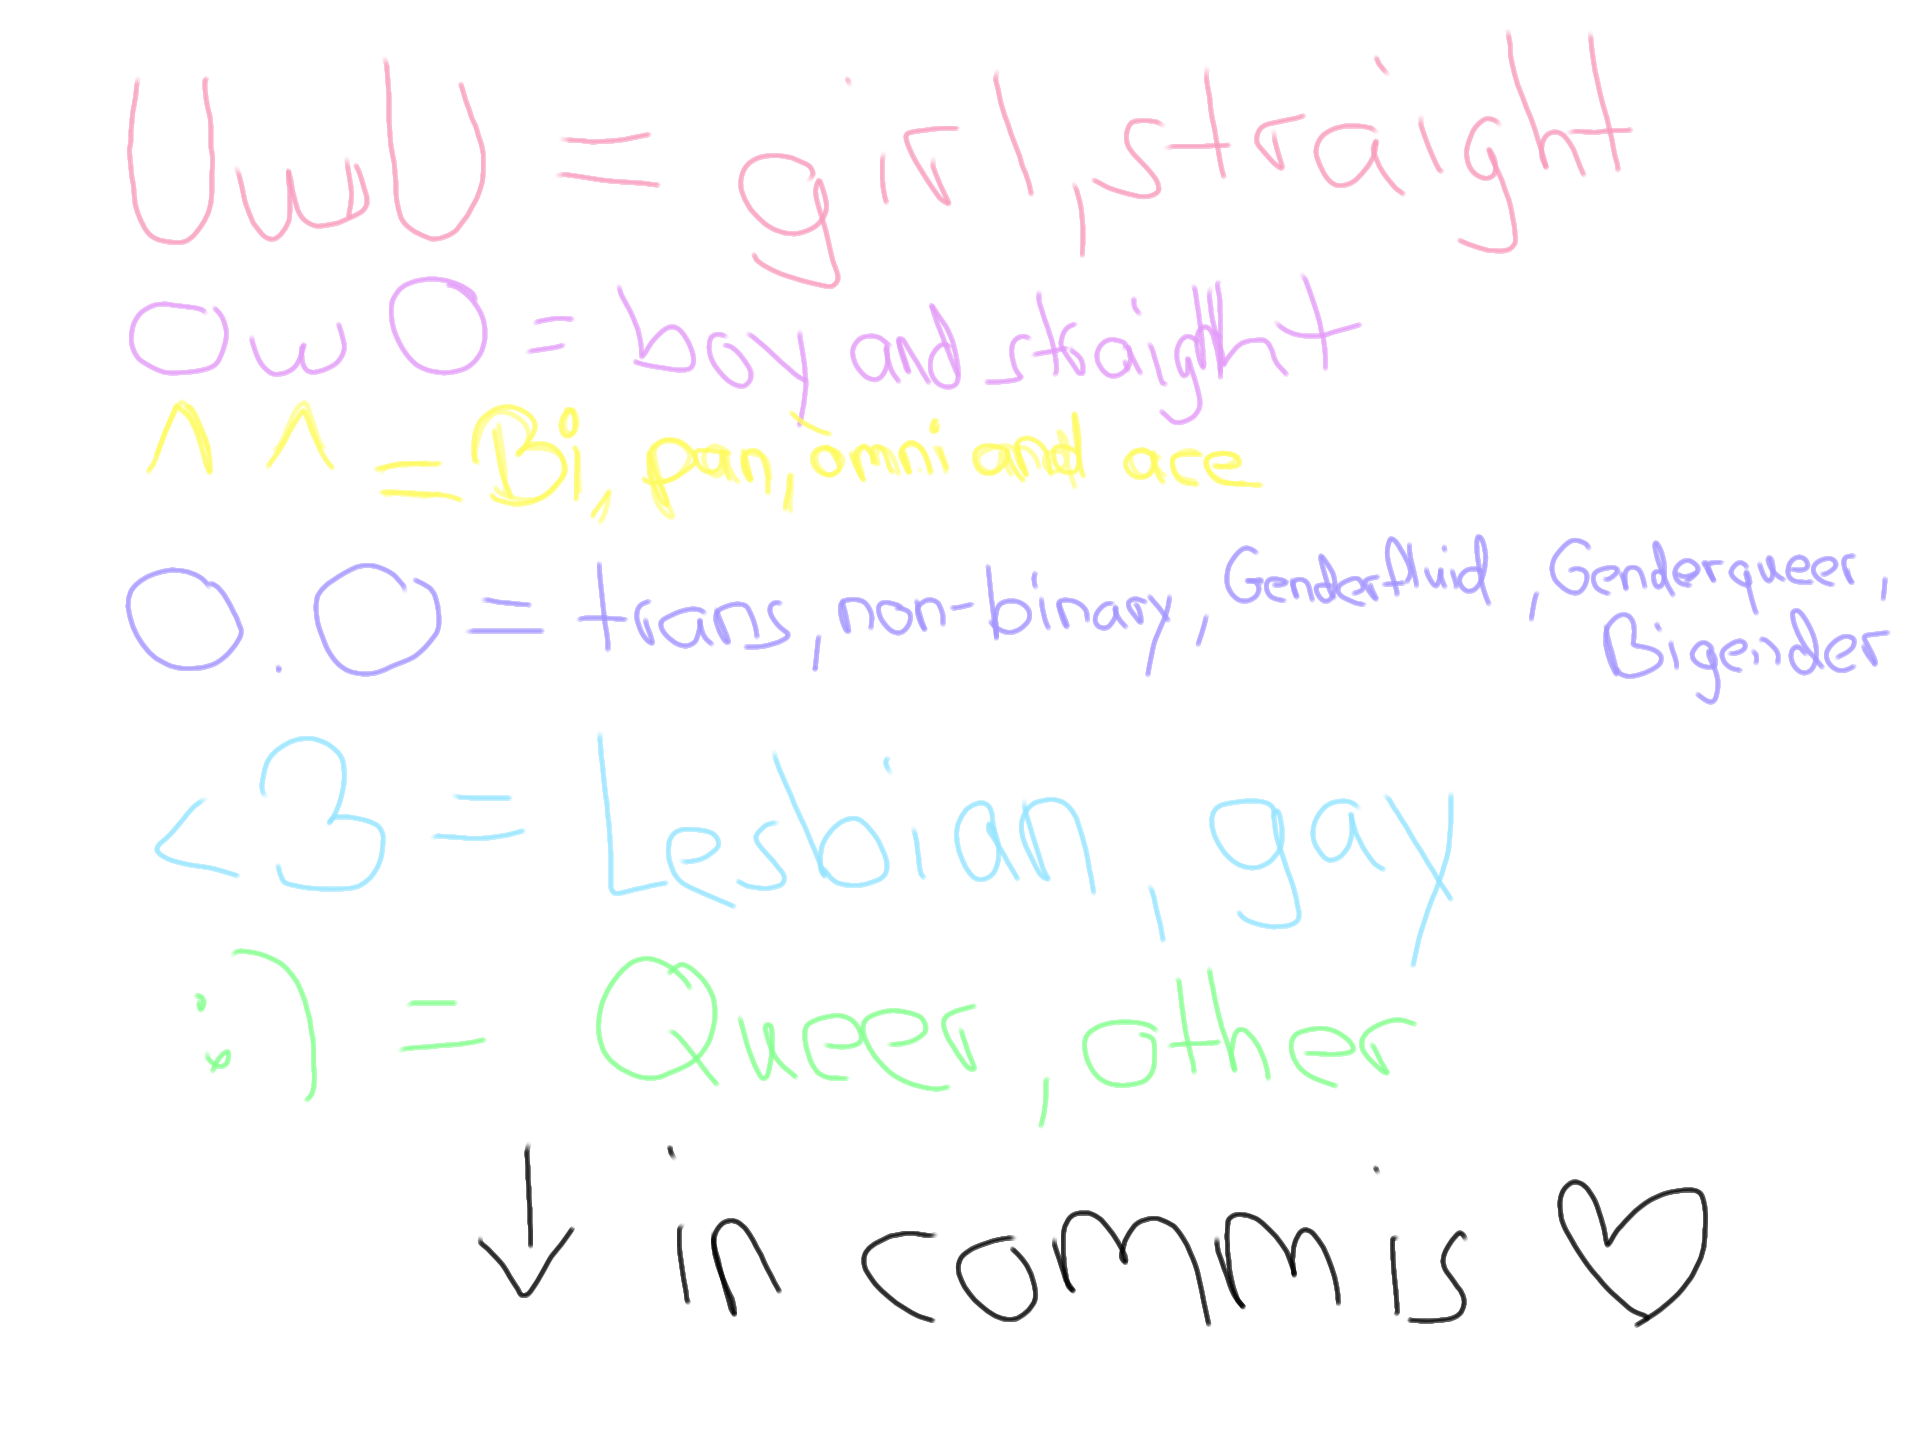 UwU = girl, straight
OwO = boy and straight
^ ^ = Bi, pan, omni and ace
O.O = trans, non-binary, Genderfluid, Genderqueer,
Bigender
<3 = Lesbian, gay
:) = Queer, other
↓ in commis ♡